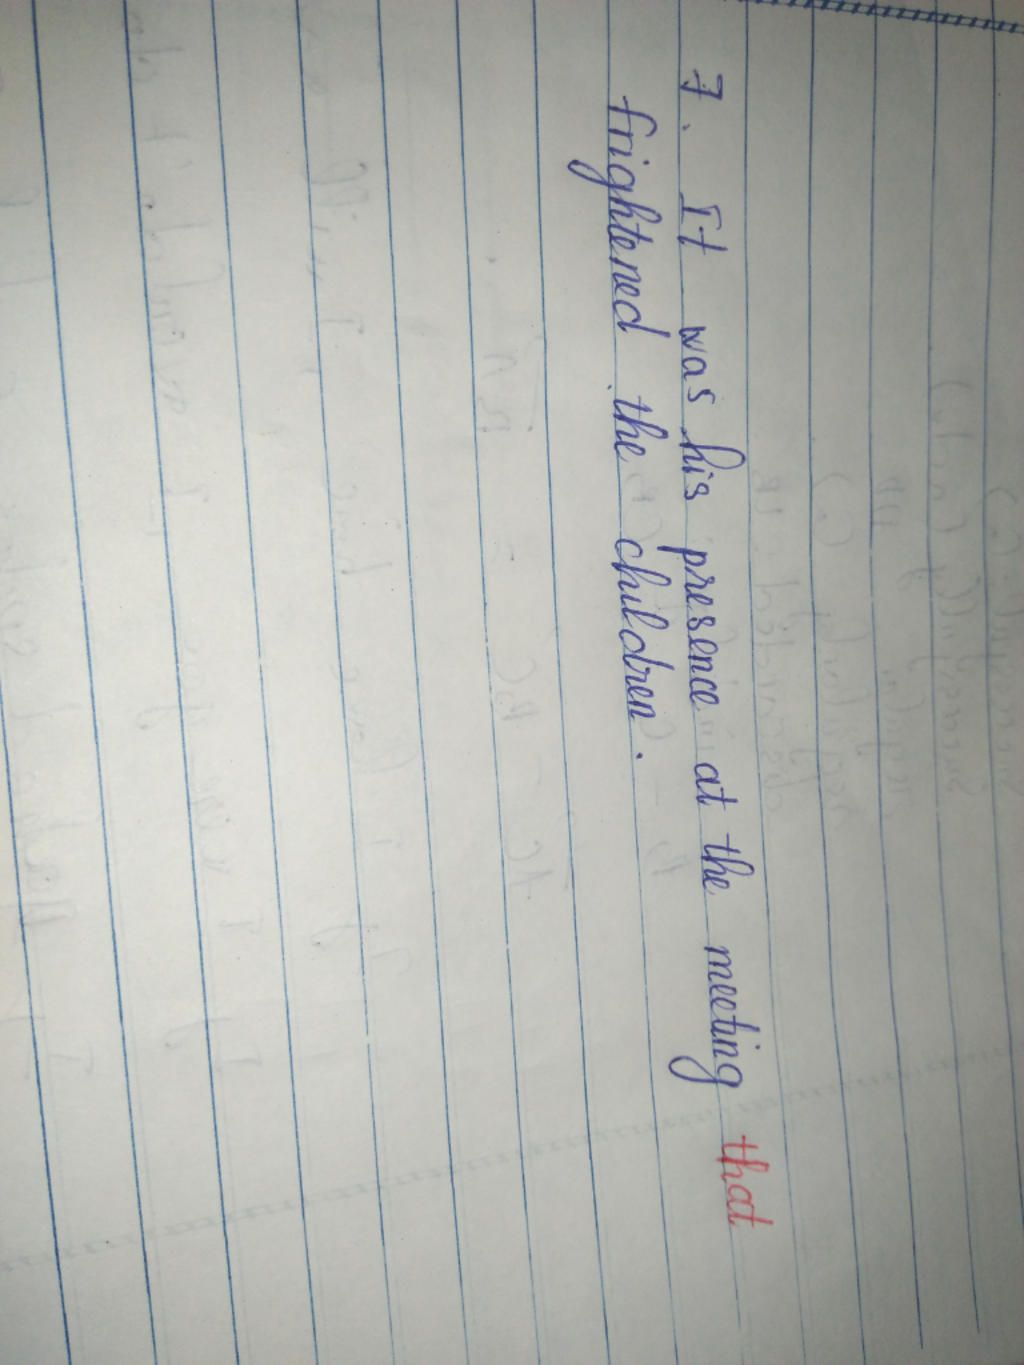 7. It was his presence at the meeting that
frightened the children.